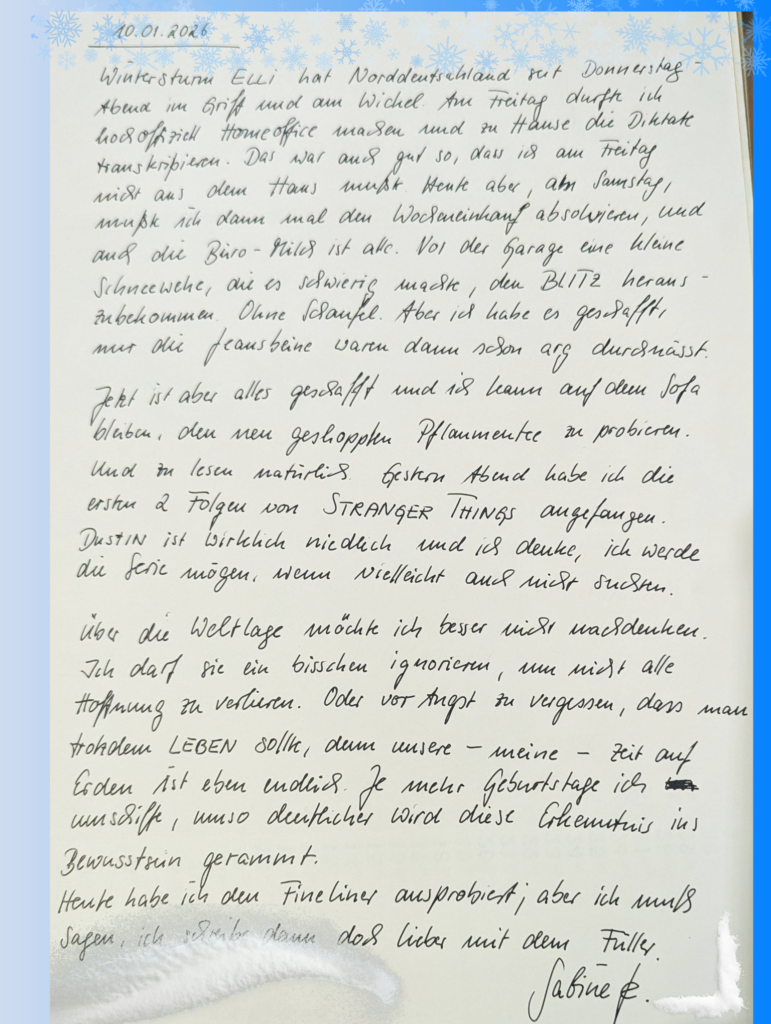 10.01.2026
Wintersturm ELLI hat Norddeutschland seit Donnerstag-
Abend im Griff und am Wickel. Am Freitag durfte ich
hochoffiziell Homeoffice machen und zu Hause die Diktate
transkripieren. Das war auch gut so, dass ich am Freitag
nicht aus dem Haus mußt. Heute aber, am Samstag,
mußt ich dann mal den Wocheneinkauf absolvieren, und
auch die Büro-Milch ist alle. Vor der Garage eine kleine
Schneewehe, die es schwierig machte, den BLITZ heraus-
zubekommen. Ohne Schaufel. Aber ich habe es geschafft,
nur die Jeansbeine waren dann schon arg durchnässt.
Jetzt ist aber alles geschafft und ich kann auf dem Sofa
bleiben, den neu geshoppten Pflaumentee zu probieren.
Und zu lesen natürlich. Gestern Abend habe ich die
ersten 2 Folgen von STRANGER THINGS angefangen.
DUSTIN ist wirklich niedlich und ich denke, ich werde
die Serie mögen, wenn vielleicht auch nicht suchten.
Über die Weltlage möchte ich besser nicht nachdenken.
Ich darf sie ein bisschen ignorieren, um nicht alle
Hoffnung zu verlieren. Oder vor Angst zu vergessen, dass man
trotzdem LEBEN sollte, denn unsere - meine - Zeit auf
Erden ist eben endlich. Je mehr Geburtstage ich
umschiffe, umso deutlicher wird diese Erkenntnis ins
Bewusstsein gerammt.
Heute habe ich den Fineliner ausprobiert; aber ich muß
sagen, ich schreibe dann doch lieber mit dem Füller.
Sabine